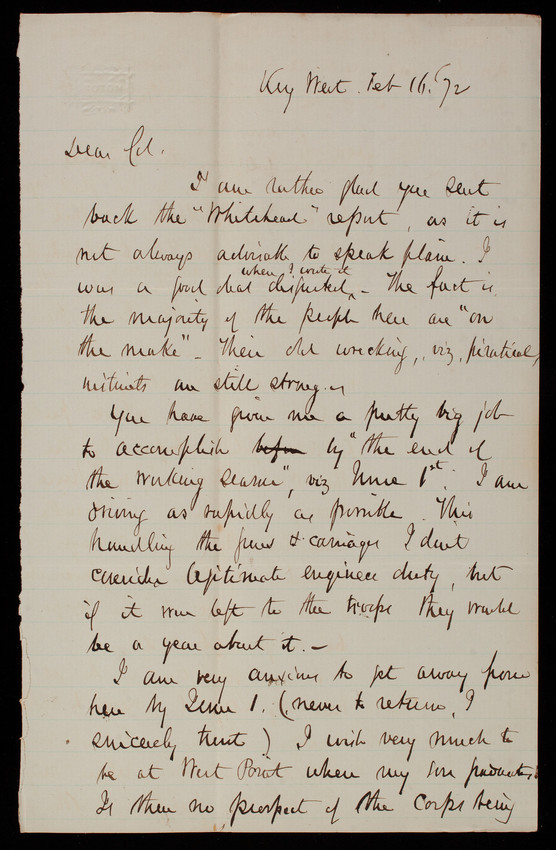 Key West. Feb 16. '72
Dear Col.
I am rather glad you sent
back the "Whitehead" report, as it is
not always advisable to speak plain. I
when I wrote it
was a good deal disgusted - The fact is
the majority of the people here are "on
the make" - Their old wrecking, viz, piratical,
instincts are still strong. -
You have given me a pretty big job
to accomplish before by "the end of
the working season", viz June 1st. I am
driving as rapidly as possible. This
handling the guns & carriages I don't
consider legitimate engineer duty, but
if it were left to the troops they would
be a year about it. -
I am very anxious to get away from
here by June 1. (never to return, I
sincerely trust) I wish very much to
be at West Point when my son graduates.
Is there no prospect of the Corps being